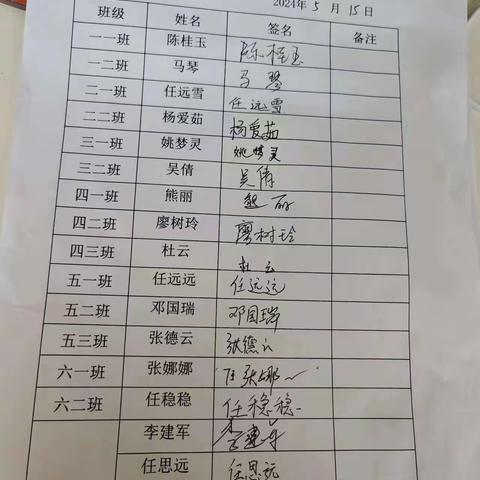 2024年5月15日
班级 姓名 签名 备注
一一班 陈桂玉 陈桂玉
一二班 马琴 马琴
二一班 任远雪 任远雪
二二班 杨爱茹 杨爱茹
三一班 姚梦灵 姚梦灵
三二班 吴倩 吴倩
四一班 熊丽 熊丽
四二班 廖树玲 廖树玲
四三班 杜云 杜云
五一班 任远远 任远远
五二班 邓国瑞 邓国瑞
五三班 张德云 张德云
六一班 张娜娜 张娜
六二班 任稳稳 任稳稳
李建军 李建军
任思远 任思远